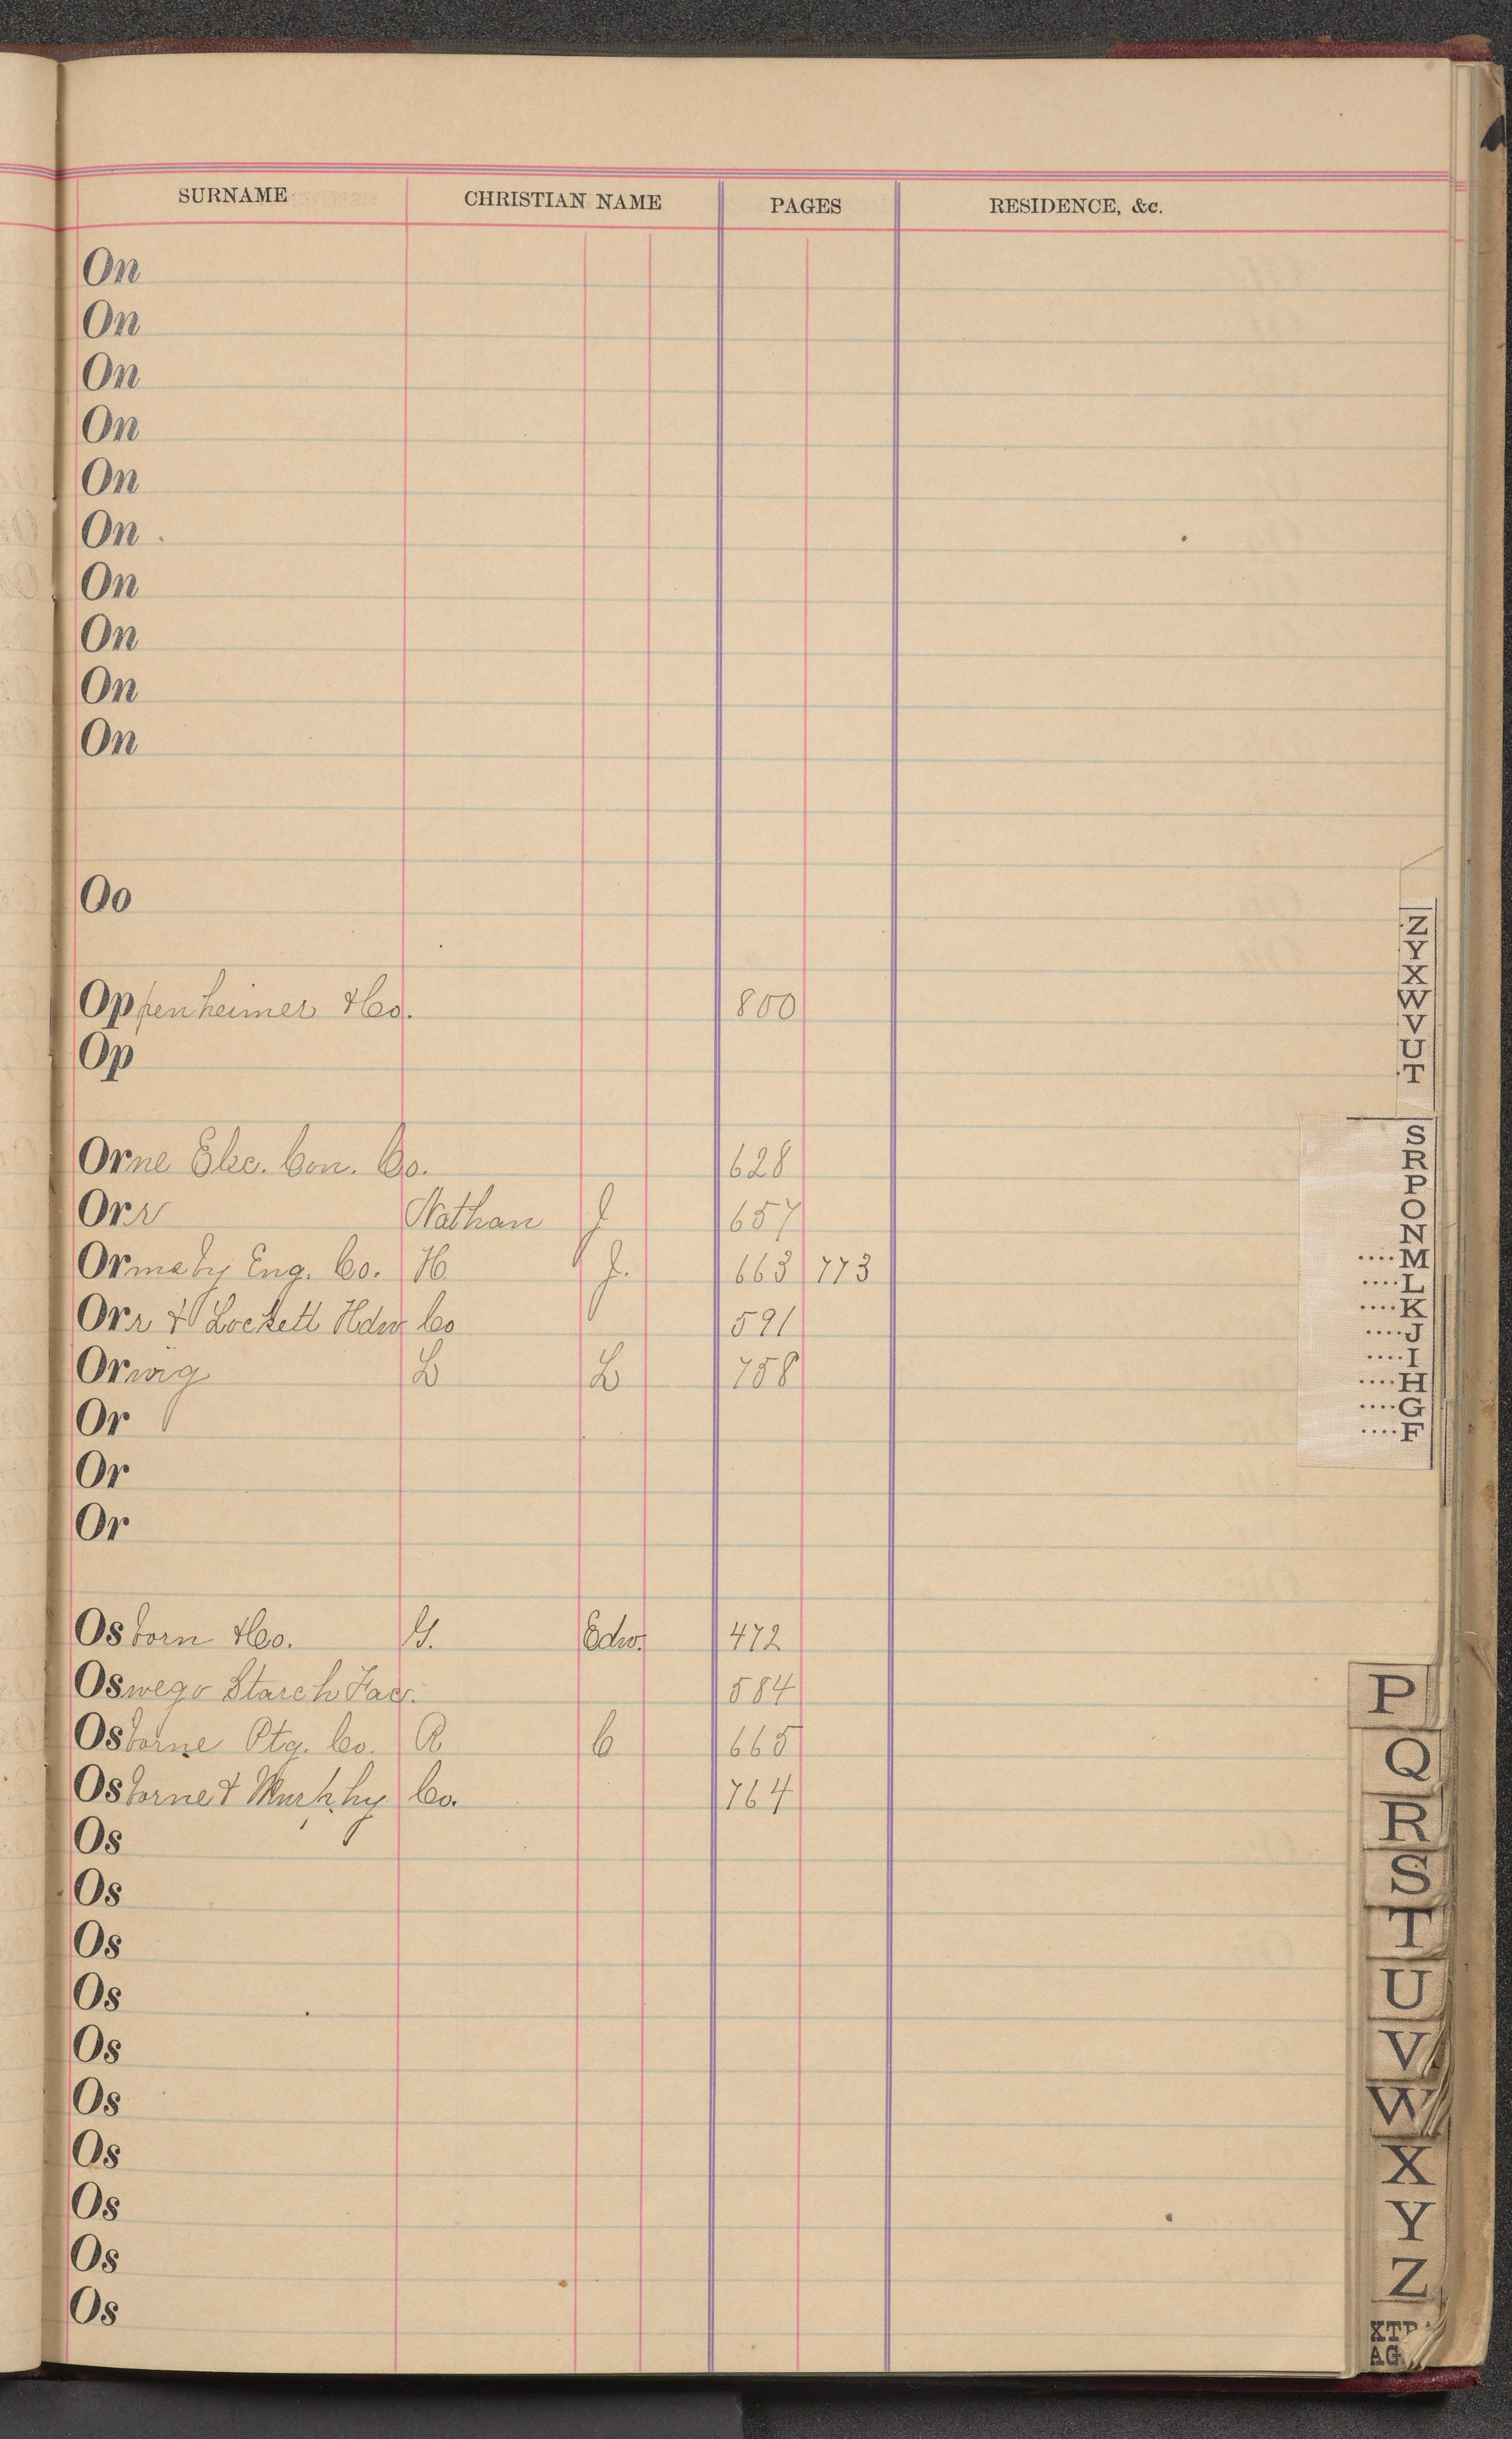 SURNAME CHRISTIAN NAME PAGES RESIDENCE, &c.
On
On
On
On
On
On
On
On
On
On
Oo
Oppenheimer & Co. 800
Op
Orne Elec. Con. Co. 628
Orr Nathan J 657
Ormsby Eng. Co. H J. 663 773
Orr & Lockett Hdw Co 591
Orwig L L 758
Or
Or
Or
Osborn & Co. G. Edw. 472
Oswego Starch Fac. 584
Osborne Ptg. Co. R C 665
Osborne & Murphy Co. 764
Os
Os
Os
Os
Os
Os
Os
Os
Os
Os
Z
Y
X
W
V
U
T
S
R
P
O
N
....M
....L
....K
....J
....I
....H
....G
....F
P
Q
R
S
T
U
V
W
X
Y
Z
XTP
AG